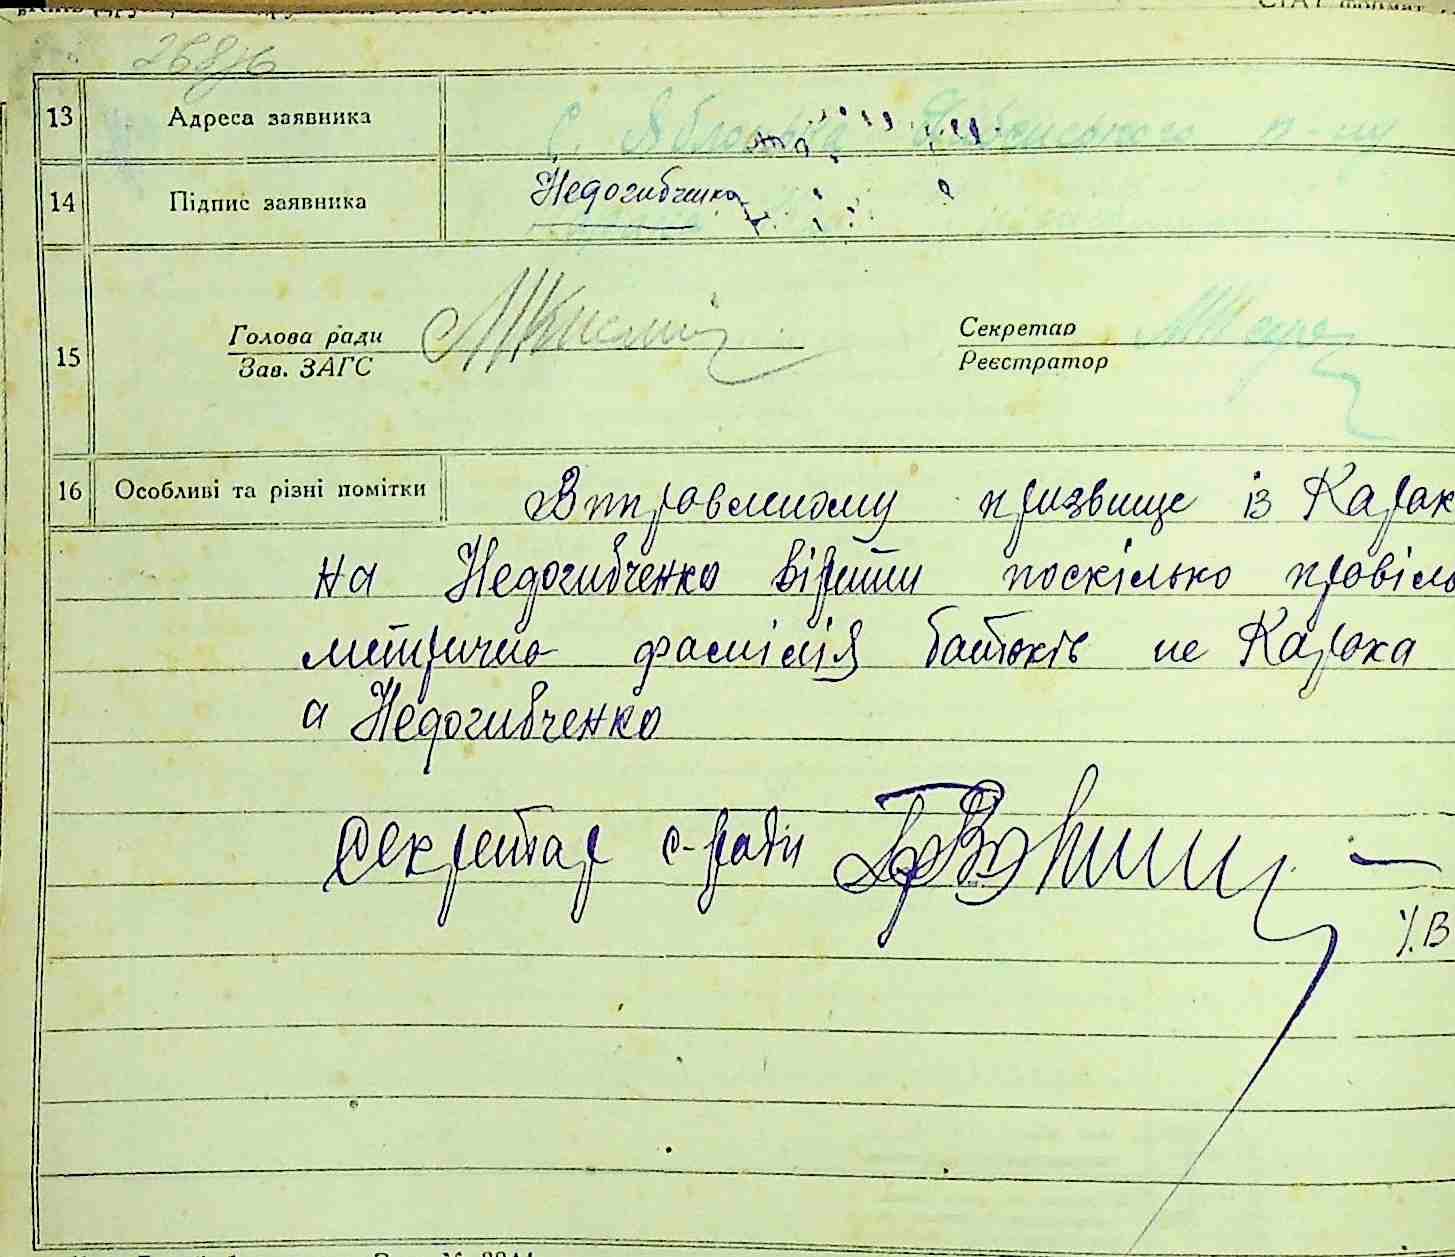 13 Адреса заявника с. Яблонька р-ну
14 Підпис заявника Недогибченко
15 Голова ради Секретар
Зав. ЗАГС Реєстратор
16 Особливі та різні помітки призвище із Карак
на Недогибченко вірити поскілько правіль
метрично фамілія батьків не Карака
а Недогибченко
Секретар с-ради